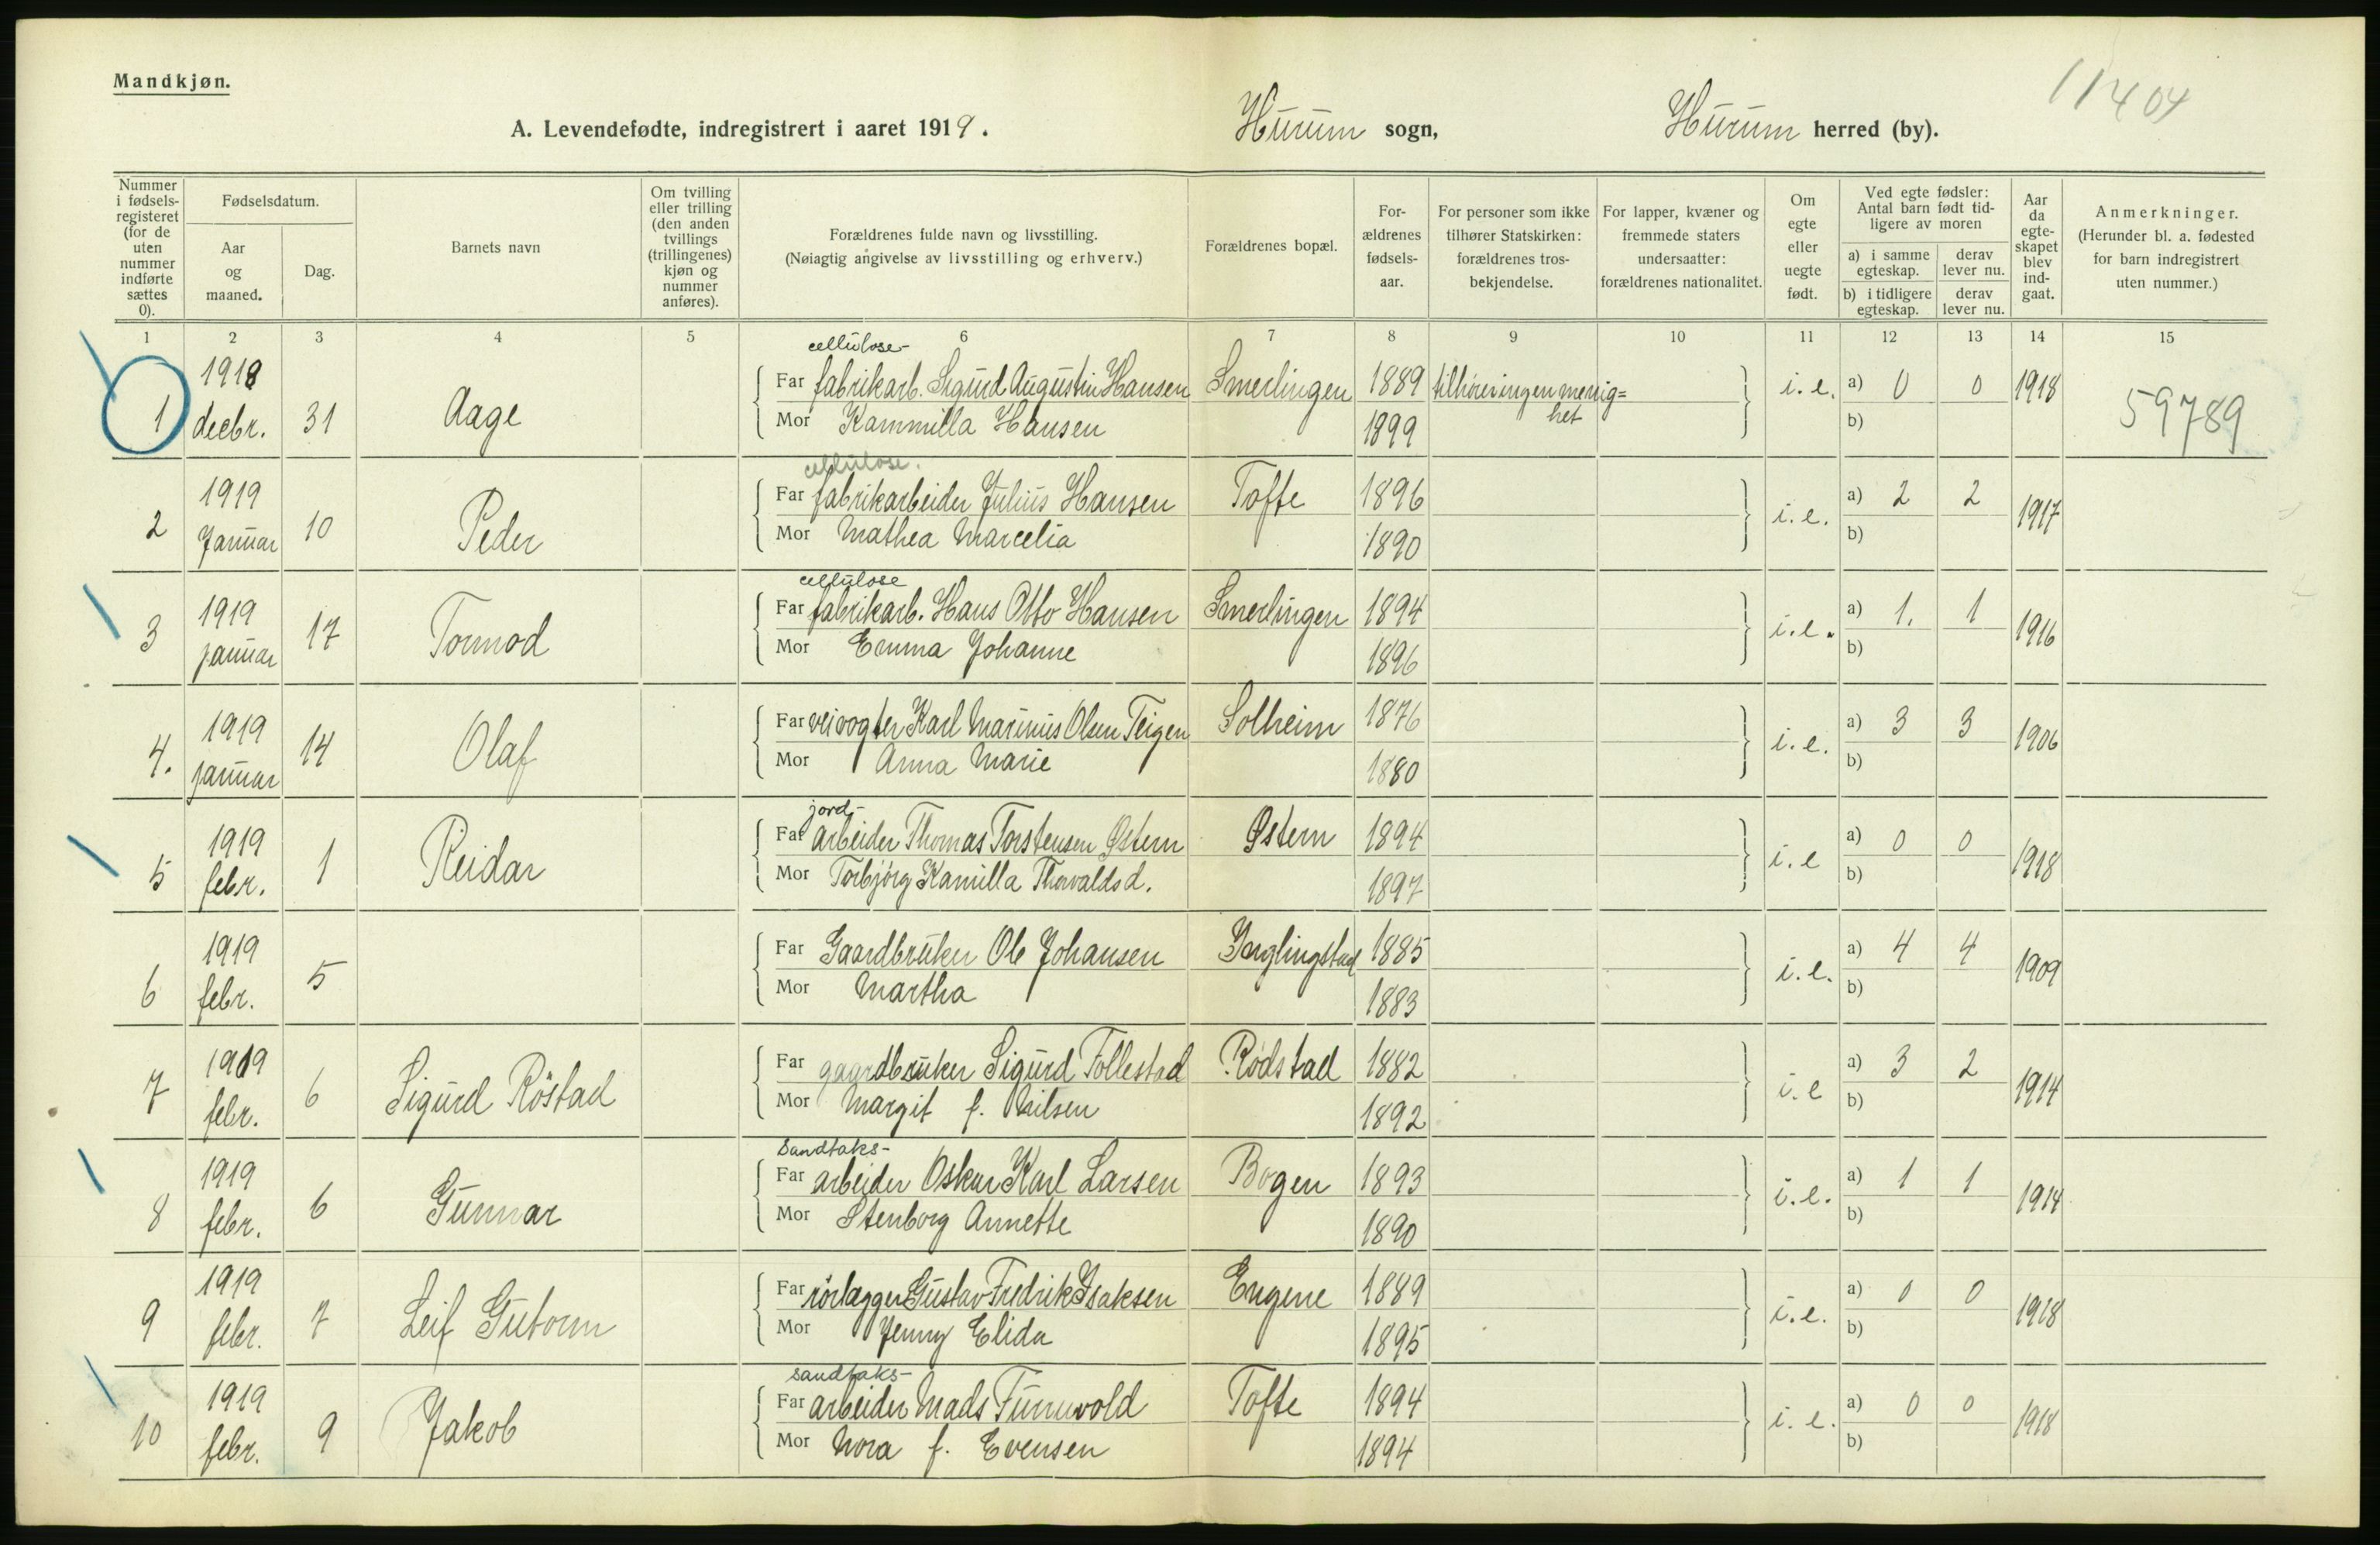 Mandkjøn.
11404
A. Levendefødte, indregistrert i aaret 1919. Hurum sogn, Hurum herred (by).
Nummer i fødsels-registeret (for de uten nummer indførte sættes 0).
Fødselsdatum.
Aar og maaned.
Dag.
Barnets navn
Om tvilling eller trilling (den anden tvillings (trillingenes) kjøn og nummer anføres).
Forældrenes fulde navn og livsstilling.
(Nøiagtig angivelse av livsstilling og erhverv.)
Forældrenes bopæl.
For-ældrenes fødsels-aar.
For personer som ikke tilhører Statskirken: forældrenes tros-bekjendelse.
For lapper, kvæner og fremmede staters undersaatter: forældrenes nationalitet.
Om egte eller uegte født.
Ved egte fødsler: Antal barn født tid-ligere av moren
a) i samme egteskap.
derav lever nu.
b) i tidligere egteskap.
derav lever nu.
Aar da egte-skapet blev ind-gaat.
Anmerkninger.
(Herunder bl. a. fødested for barn indregistrert uten nummer.)
1 2 3 4 5 6 7 8 9 10 11 12 13 14 15
cellulose-
1918 Far fabrikarb. Sigurd Augustin Hansen Smerlingen 1889 tilhører ingen menig=het i.e. a) 0 0 1918
1 decbr. 31 Aage Mor Kammilla Hansen 1899 b) 59789
cellulose.
1919 Far fabrikarbeider Julius Hansen Tofte 1896 i.e. a) 2 2 1917
2 Januar 10 Peder Mor Mathea Marcelia 1890 b)
cellulose
1919 Far fabrikarb. Hans Otto Hansen Smerlingen 1894 i.e. a) 1. 1 1916
3 januar 17 Tormod Mor Emma Johanne 1896 b)
1919 Far veivogter Karl Marinius Olsen Teigen Solheim 1876 i.e. a) 3 3 1906
4. januar 14 Olaf Mor Anna Marie 1880 b)
jord-
1919 Far arbeider Thomas Torstensen Østern Østern 1894 i.e a) 0 0 1918
5 febr. 1 Reidar Mor Torbjörg Kamilla Thorvaldsd. 1897 b)
1919 Far Gaardbruker Ole Johansen 1885 i.e. a) 4 4 1909
6 febr. 5 Mor Martha 1883 b)
1919 Far gaardbruker Sigurd Follestad Rödstad 1882 i.e a) 3 2 1914
7 febr. 6 Sigurd Röstad Mor Margit f. Nilsen 1892 b)
Sandtaks-
1919 Far arbeider Oskar Karl Larsen Bogen 1893 i.e. a) 1 1 1914
8 febr. 6 Gunnar Mor Stenborg Annette 1890 b)
1919 Far rörlægger Gustav Fredrik Isaksen Engene 1889 i.e. a) 0 0 1918
9 febr. 7 Leif Gutorm Mor Jenny Elida 1895 b)
sandtaks-
1919 Far arbeider Mads Tofte 1894 i.e. a) 0 0 1918
10 febr. 9 Jakob Mor Nora f. Evensen 1894 b)